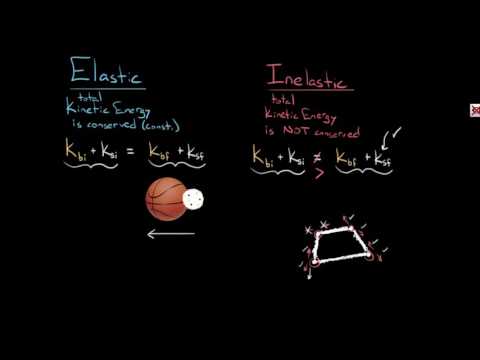 Elastic
total
Kinetic Energy
is conserved (const.)
K_bi + K_si = K_bf + K_sf
Inelastic
total
Kinetic Energy
is NOT conserved
K_bi + K_si ≠ K_bf + K_sf
>